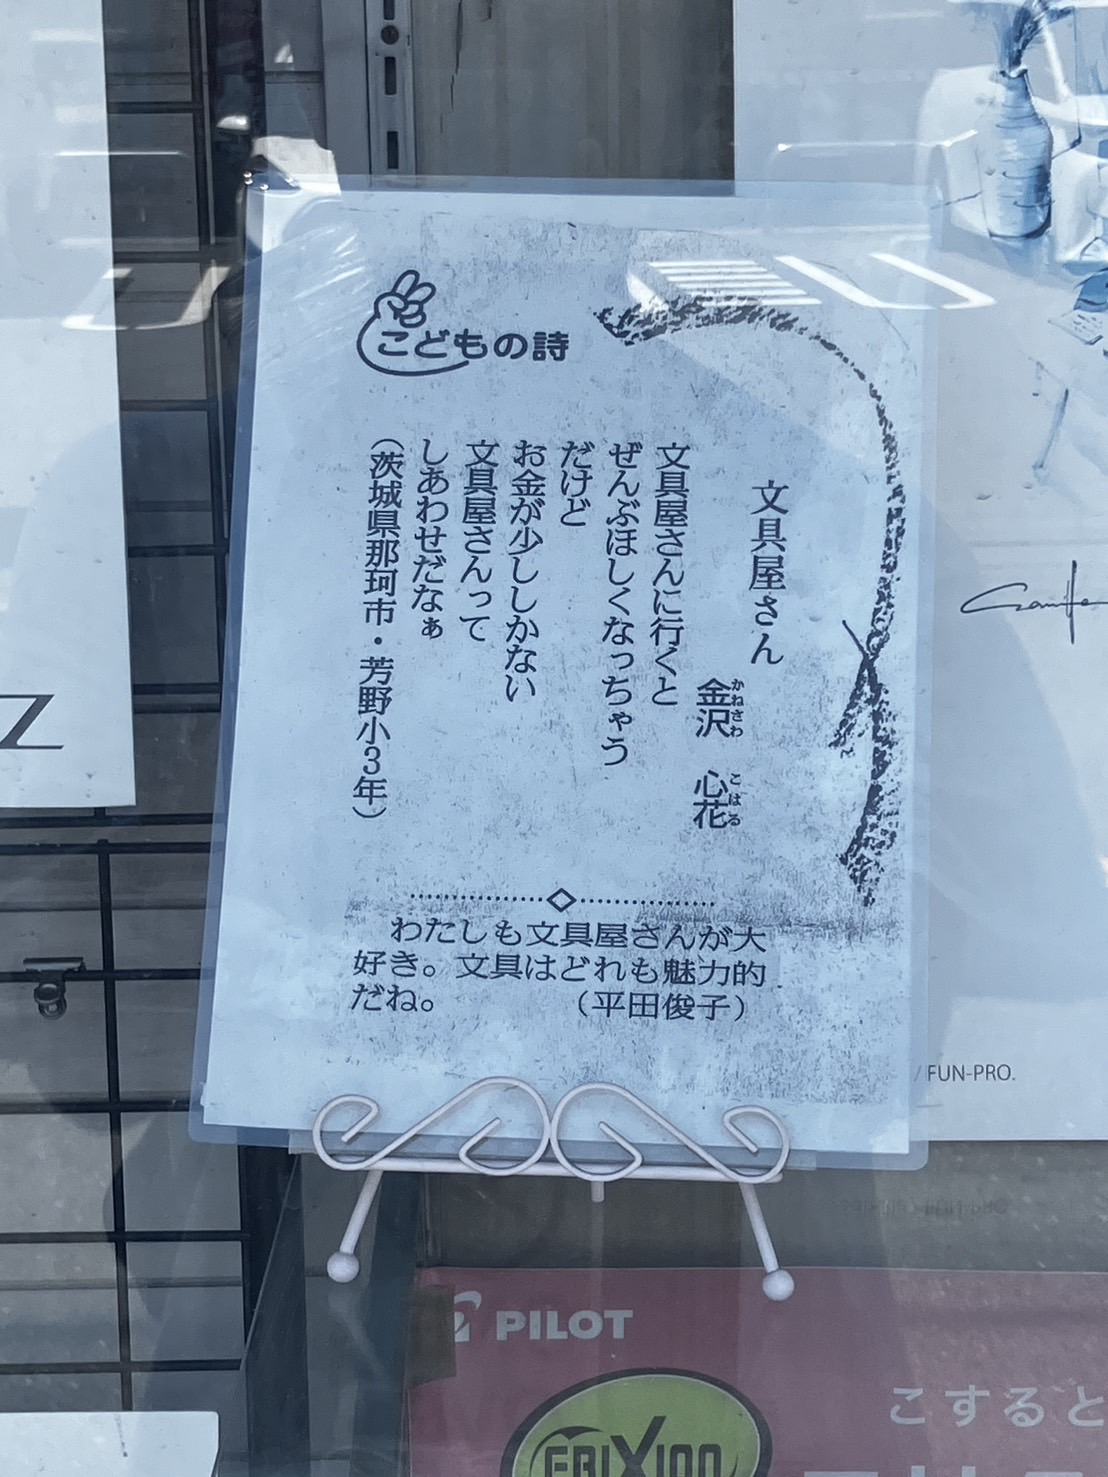 こどもの詩
文具屋さん
金沢 心花
かねさわ こはる
文具屋さんに行くと
ぜんぶほしくなっちゃう
だけど
お金が少ししかない
文具屋さんって
しあわせだなぁ
(茨城県那珂市・芳野小3年)
わたしも文具屋さんが大
好き。文具はどれも魅力的
だね。 (平田俊子)
/ FUN-PRO.
PILOT
こすると
FRIXION